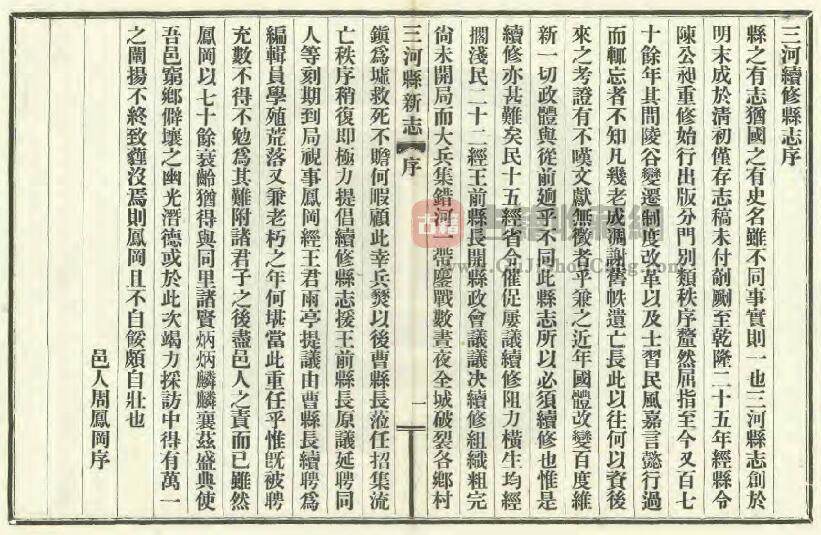 三河續修縣志序
縣之有志猶國之有史名雖不同事實則一也三河縣志創於
明末成於清初僅存志稿未付剞劂至乾隆二十五年經縣令
陳公昶重修始行出版分門別類秩序釐然屈指至今又百七
十餘年其間陵谷變遷制度改革以及士習民風嘉言懿行過
而輒忘者不知凡幾老成凋謝舊帙遺亡長此以往何以資後
來之考證有不嘆文獻無徵者乎兼之近年國體改變百度維
新一切政體與從前迥乎不同此縣志所以必須續修也惟是
續修亦甚難矣民十五經省令催促屢議續修阻力橫生均經
擱淺民二十二經王前縣長開縣政會議議決續修組織粗完
尙未開局而大兵集錯河一帶鏖戰數晝夜全城破裂各鄉村
三河縣新志
序
一
鎭爲墟救死不贍何暇顧此幸兵燹以後曹縣長蒞任招集流
亡秩序稍復即極力提倡續修縣志援王前縣長原議延聘同
人等刻期到局視事鳳岡經王君雨亭提議由曹縣長續聘爲
編輯員學殖荒落又兼老朽之年何堪當此重任乎惟旣被聘
充數不得不勉爲其難附諸君子之後盡邑人之責而已雖然
鳳岡以七十餘衰齡猶得與同里諸賢炳炳麟麟襄茲盛典使
吾邑窮鄉僻壤之幽光潛德或於此次竭力採訪中得有萬一
之闡揚不終致薶沒焉則鳳岡且不自餒頗自壯也
邑人周鳳岡序
古籍